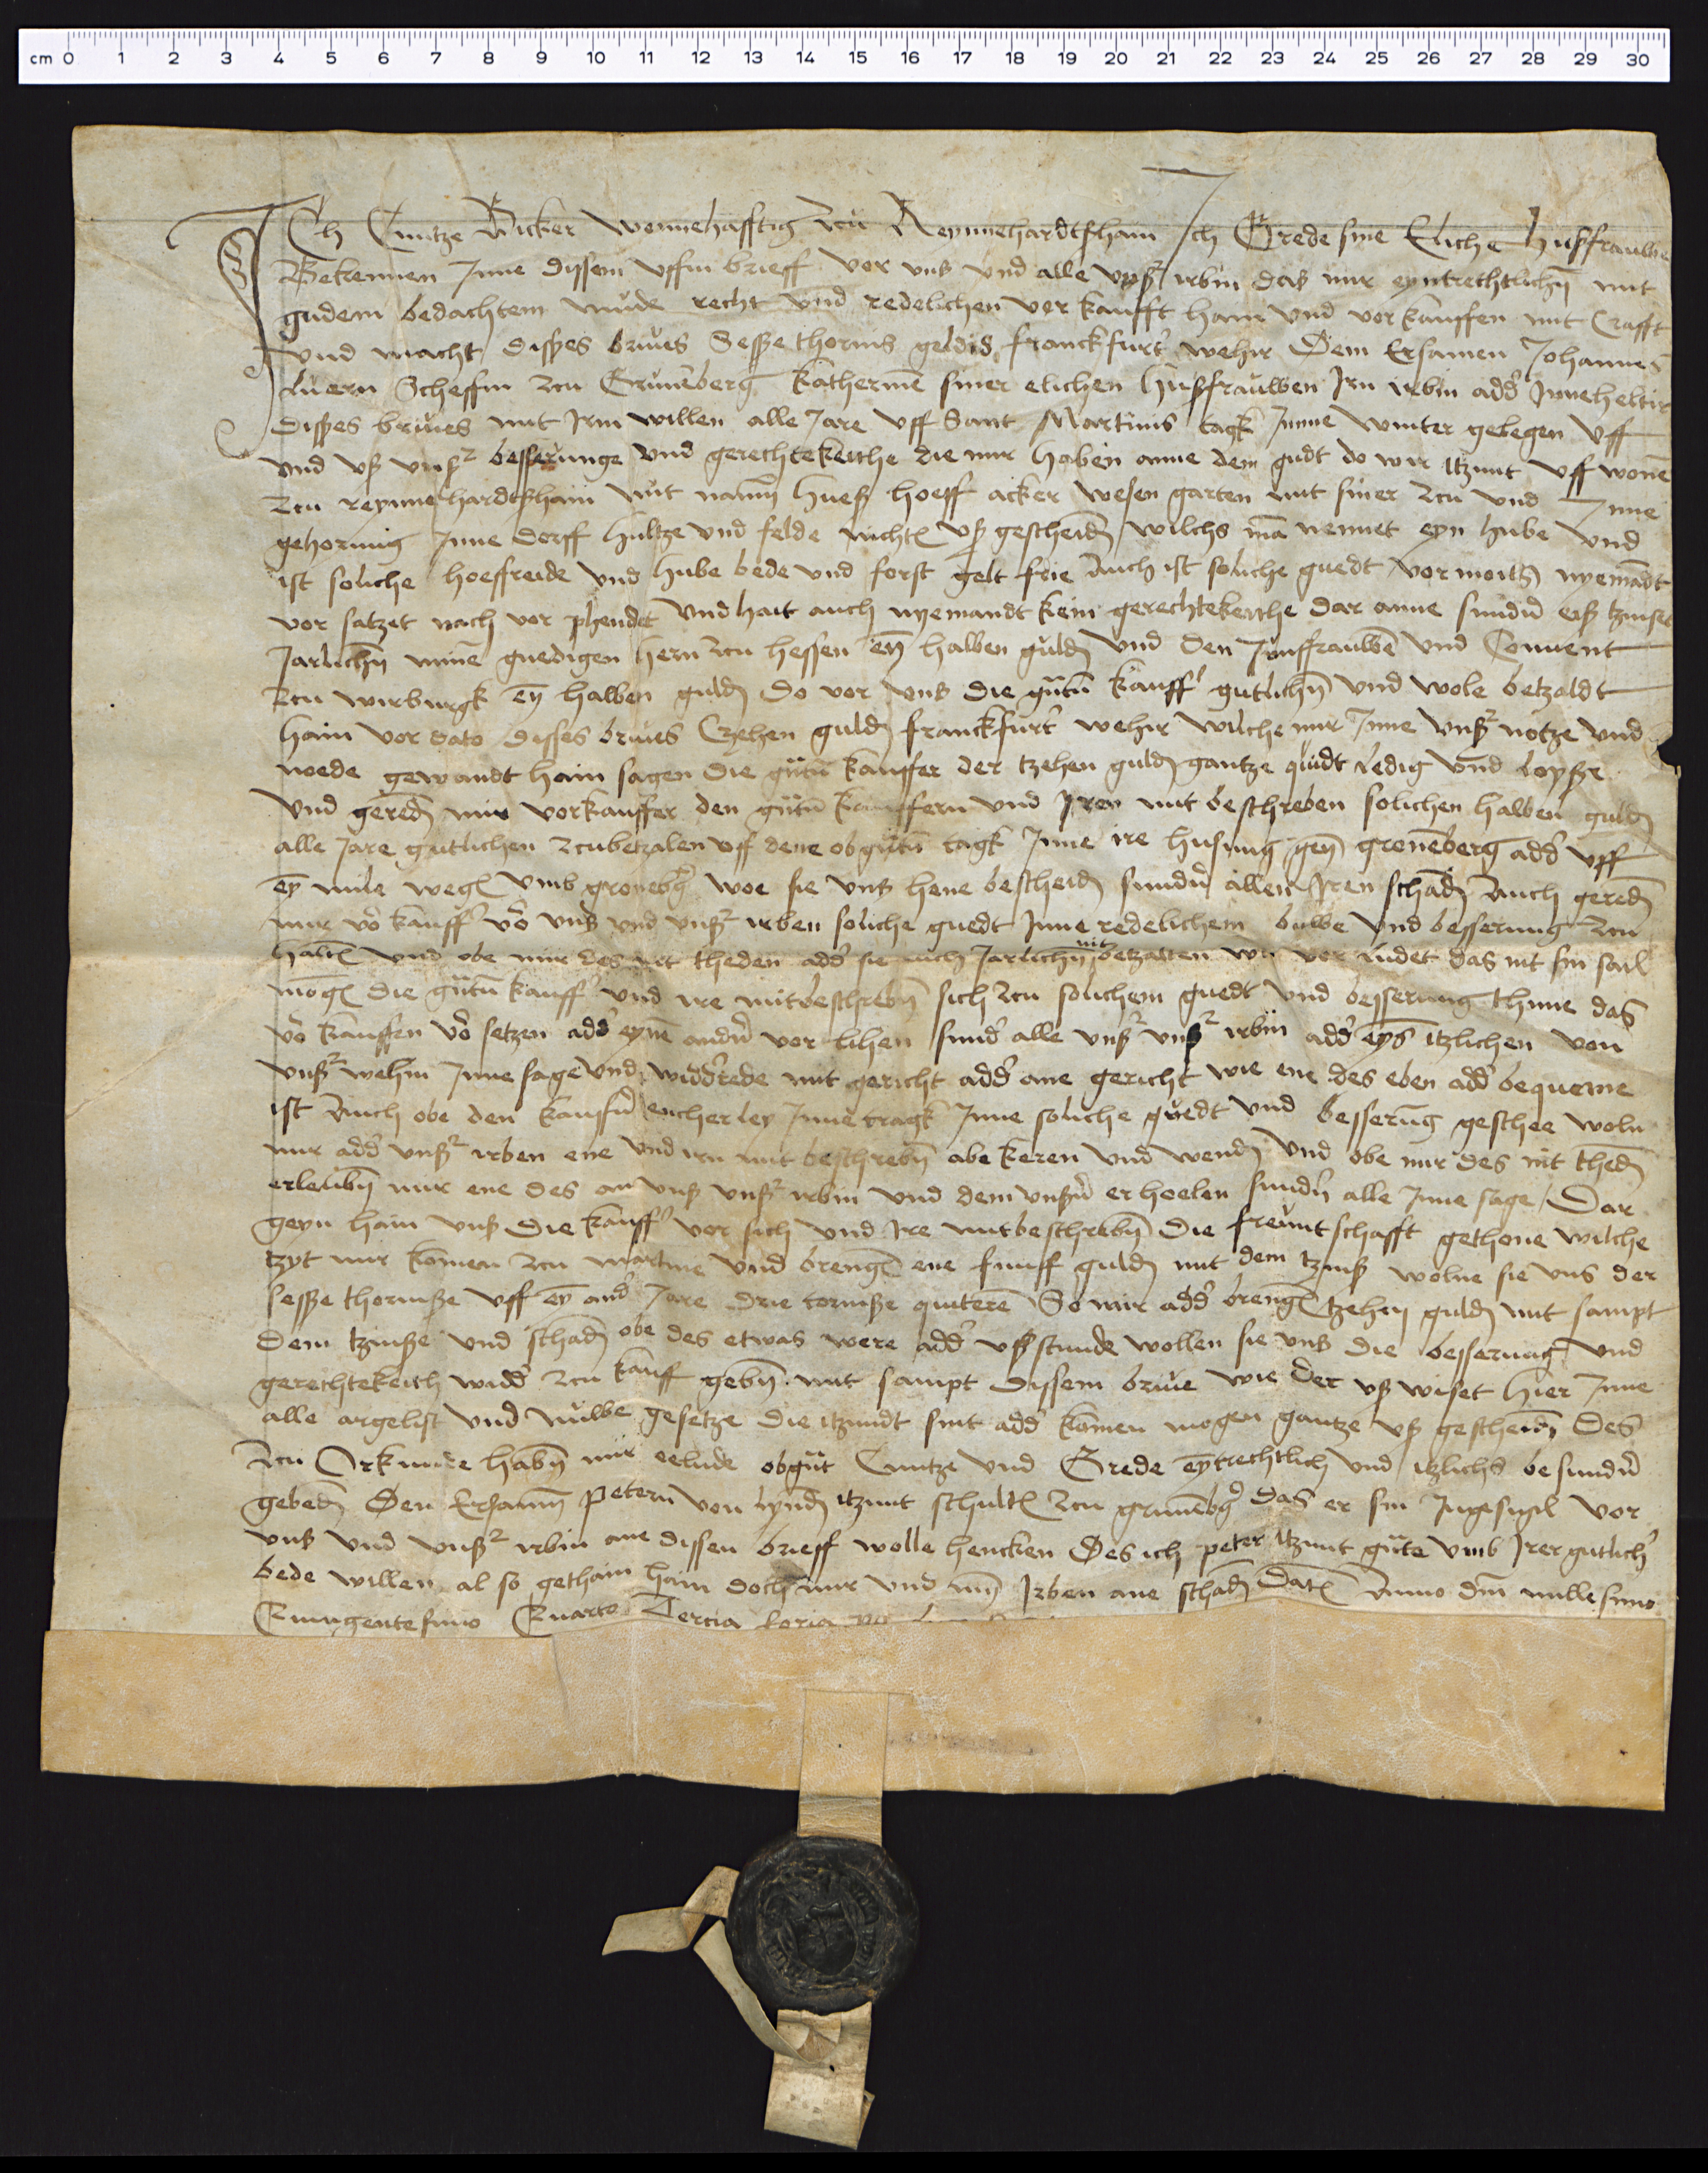 cm 0 1 2 3 4 5 6 7 8 9 10 11 12 13 14 15 16 17 18 19 20 21 22 23 24 25 26 27 28 29 30
Ich Cuntze Wicker wennehafftig zcu Reynnehardtshain Ich Grede sine Eliche hußfrauwe
Bekennen Inne dissem uffin brieff vor unß und alle unß' irbin das mir eyntrechtlichn mit
gudem bedachtem mude recht und redelichen verkaufft hain und vorkauffen mit Crafft
und macht dißes brives Seße thornis geldis franckfurt' wehir Dem Ersamen Johannes
luern Scheffin zcu Grunēberg Katherinē siner elichen hußfrauwen Irn irbin add' Inneheltir
dißes brives mit Irm willen alle Jare uff Sant Martinis tagk Inne winter gelegen uff
und uß unß' besserunge und gerechtekeithe die mir haben anne dem gudt do wir itzunt uff wonē
zcu reynnehardtshain mit namn hueß hoeff acker wesen garten mit siner zcu und Inne
gehorung Inne dorff hultze und felde nichtz uß gescheidn wilchs ma nennet eyn hube und
ist soliche hoeffreide und hube bede und forst gelt frie Auch ist soliche guedt vormoilß nyemādt
vor satzet nach vor phendet und hait auch nyemandt kein gerechtekeithe dar anne sundir eiß tzinse
Jarlichn minē gnedigen hern zcu hessen ey halben guldn und den Junffrauwē und Convent
zcu wirburgk ey halben guldn do vor unß die gntn kauff' gutlichn und wole betzaldt
hain vor dato disses brives Czehen guldn franckfurt' wehir wilche mir Inne unß' notze und
noede gewandt hain sagen die gntn kauffer der tzehen guldn gantze quidt ledig und loyße
und geredn mir vorkauffer den gntn kauffern und Iren mit beschreben solichen halben guldn
alle Jare gutlichen zcubetzalen uff dene obgntn tagk Inne ire husung gen gronēberg add' uff
ey mile wegs umb gronebg woe sie unß hene bescheidn sundir allen Iren schadn Auch geredn
mir vo' kauff' vo' unß und unß' irben soliche guedt Inne redelichem buwe und besserung zcu
haltn und obe mir des nit theden add' sie auch Jarlichn nit betzalten wie vor ludet das nit sin sail
mogn die gntn kauff' und ire mitbeschrebn sich zcu solichem guedt und besserung thune das
vo' kauffen vo' setzen add' eynē andn vor lihen sund' alle unß' unß' irbin add' eyß itzlichen von
unß' wehin Inne sage und widd'rede mit gericht add' ane gericht wie ene des eben add' bequeme
ist Auch obe den kauffn eicherley Inne tragk Inne soliche guedt und besserug geschee woln
mir add' unß' irben ene und irn mit beschrebn abe keren und wendn und obe mir des nit thedn
erleubn mir ene des an unß unß' irbin und dem unßn er hoelen sundn alle Inne sage Dar
geyn hain unß die kauff' vor sich und Ire mitbeschrebn die freuntschafft gethone wilche
tzyt mir komen zcu martine und brengn ene funff guldn mit dem tzinß wolne sie unß der
seße thornße uff ey and' Jare drie tornße quiterē So mir add' brengn tzehen guldn mit sampt
dem tzinße und schadn obe des etwas were add' ußstunde wollen sie unß die besserung und
gerechtekeith widd' zcu kauff gebn mit sampt dissem brive wie der uß wiset hier Inne
alle argelist und nuwe gesetze die itzundt sint add' komen mogen gantze uß gescheidn Des
zcu Orkunde habn mir eelude obgnt Cuntze und Grede eytrechtlich und itzlichs besundn
gebedn Den Ersamn petern von lyndn itzunt schultz zcu grunēbg das er sin Ingesigil vor
unß und unß' irbin ane dissen brieff wolle hencken Des ich peter itzunt gnte umb Irer gutlich'
bede willen also gethain hain doch mir und myn Irben ane schadn Datz Anno dni millesimo
Quingentesimo Quarto Tercia feria